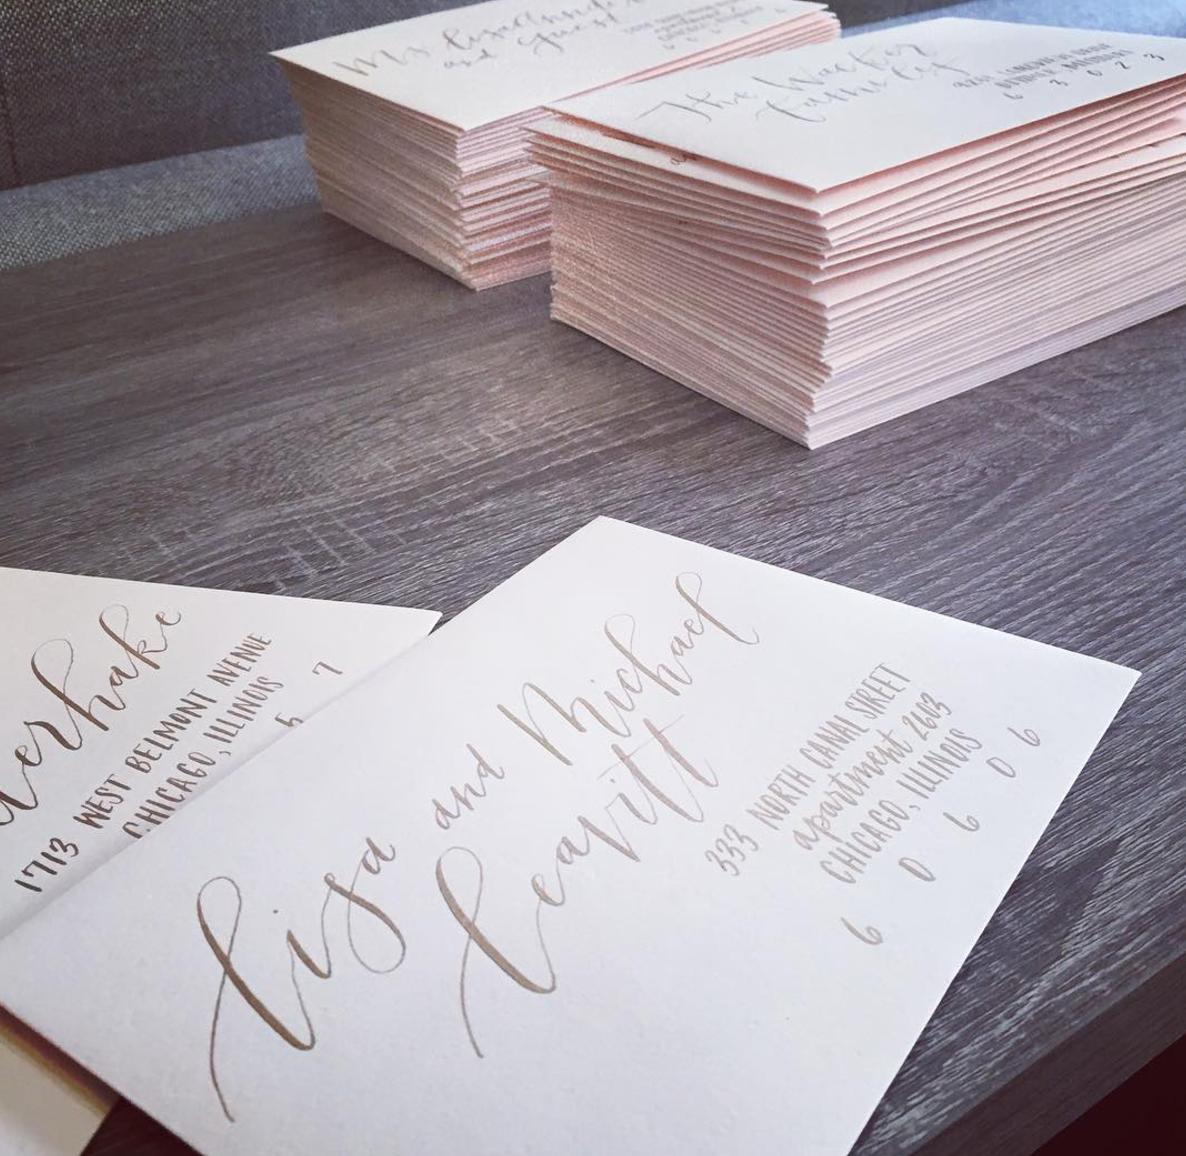 and Guest
The Wacker
Family
6 3 0 2 3
erhake
1713 WEST BELMONT AVENUE
CHICAGO, ILLINOIS
5 7
Lisa and Michael
Leavitt
333 NORTH CANAL STREET
apartment 2603
CHICAGO, ILLINOIS
6 0 6 0 6